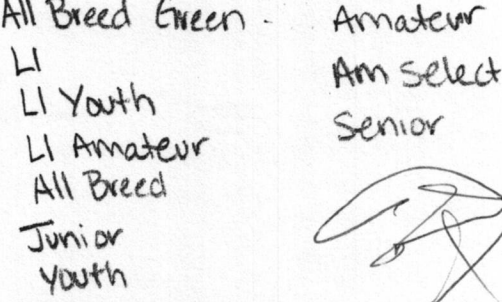 All Breed Green -
LI
LI Youth
LI Amateur
All Breed
Junior
Youth
Amateur
Am Select
Senior